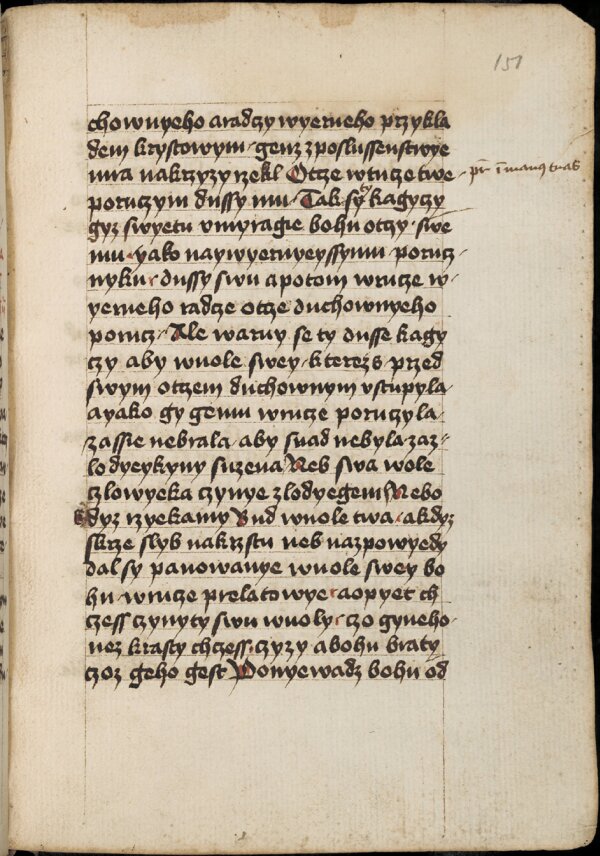 151
chownyeho aradzy wyerneho przykla
dem krystowym genz z poslussenstwye
mra nakrzyzy rzekl Otcze wrucze twe
porucżym dussy mu Tak sy kagyczy
gyz swyetu vmyragie bohu otczy swe
mu yako naywyernyeyssymu porucz
nyku dussy swu a potom wrucze w
yerneho radze otcze duchownyeho
porucz Ale waruy se ty dusse kagy
czy aby wuole swey kterezs przed
swym otczem duchownym vstupyla
a yako gy gemu wrucze poruczyla
zassie nebrala aby snad nebyla zaz
lodyeykyny suzena Neb swa wole
czlowyeka czynye zlodyegem Nebo
kdyz rzyekamy Bud wuole twa a kdyz
skrze slyb nakrzstu neb nazpowyedy
dal sy panowanye wuole swey bo
hu wrucze prelatowye a opyet ch
czess czynyty swu wuoly czo gyneho
nez krasty chczess czyzy a bohu braty
czoz geho gest Ponyewadz bohu od